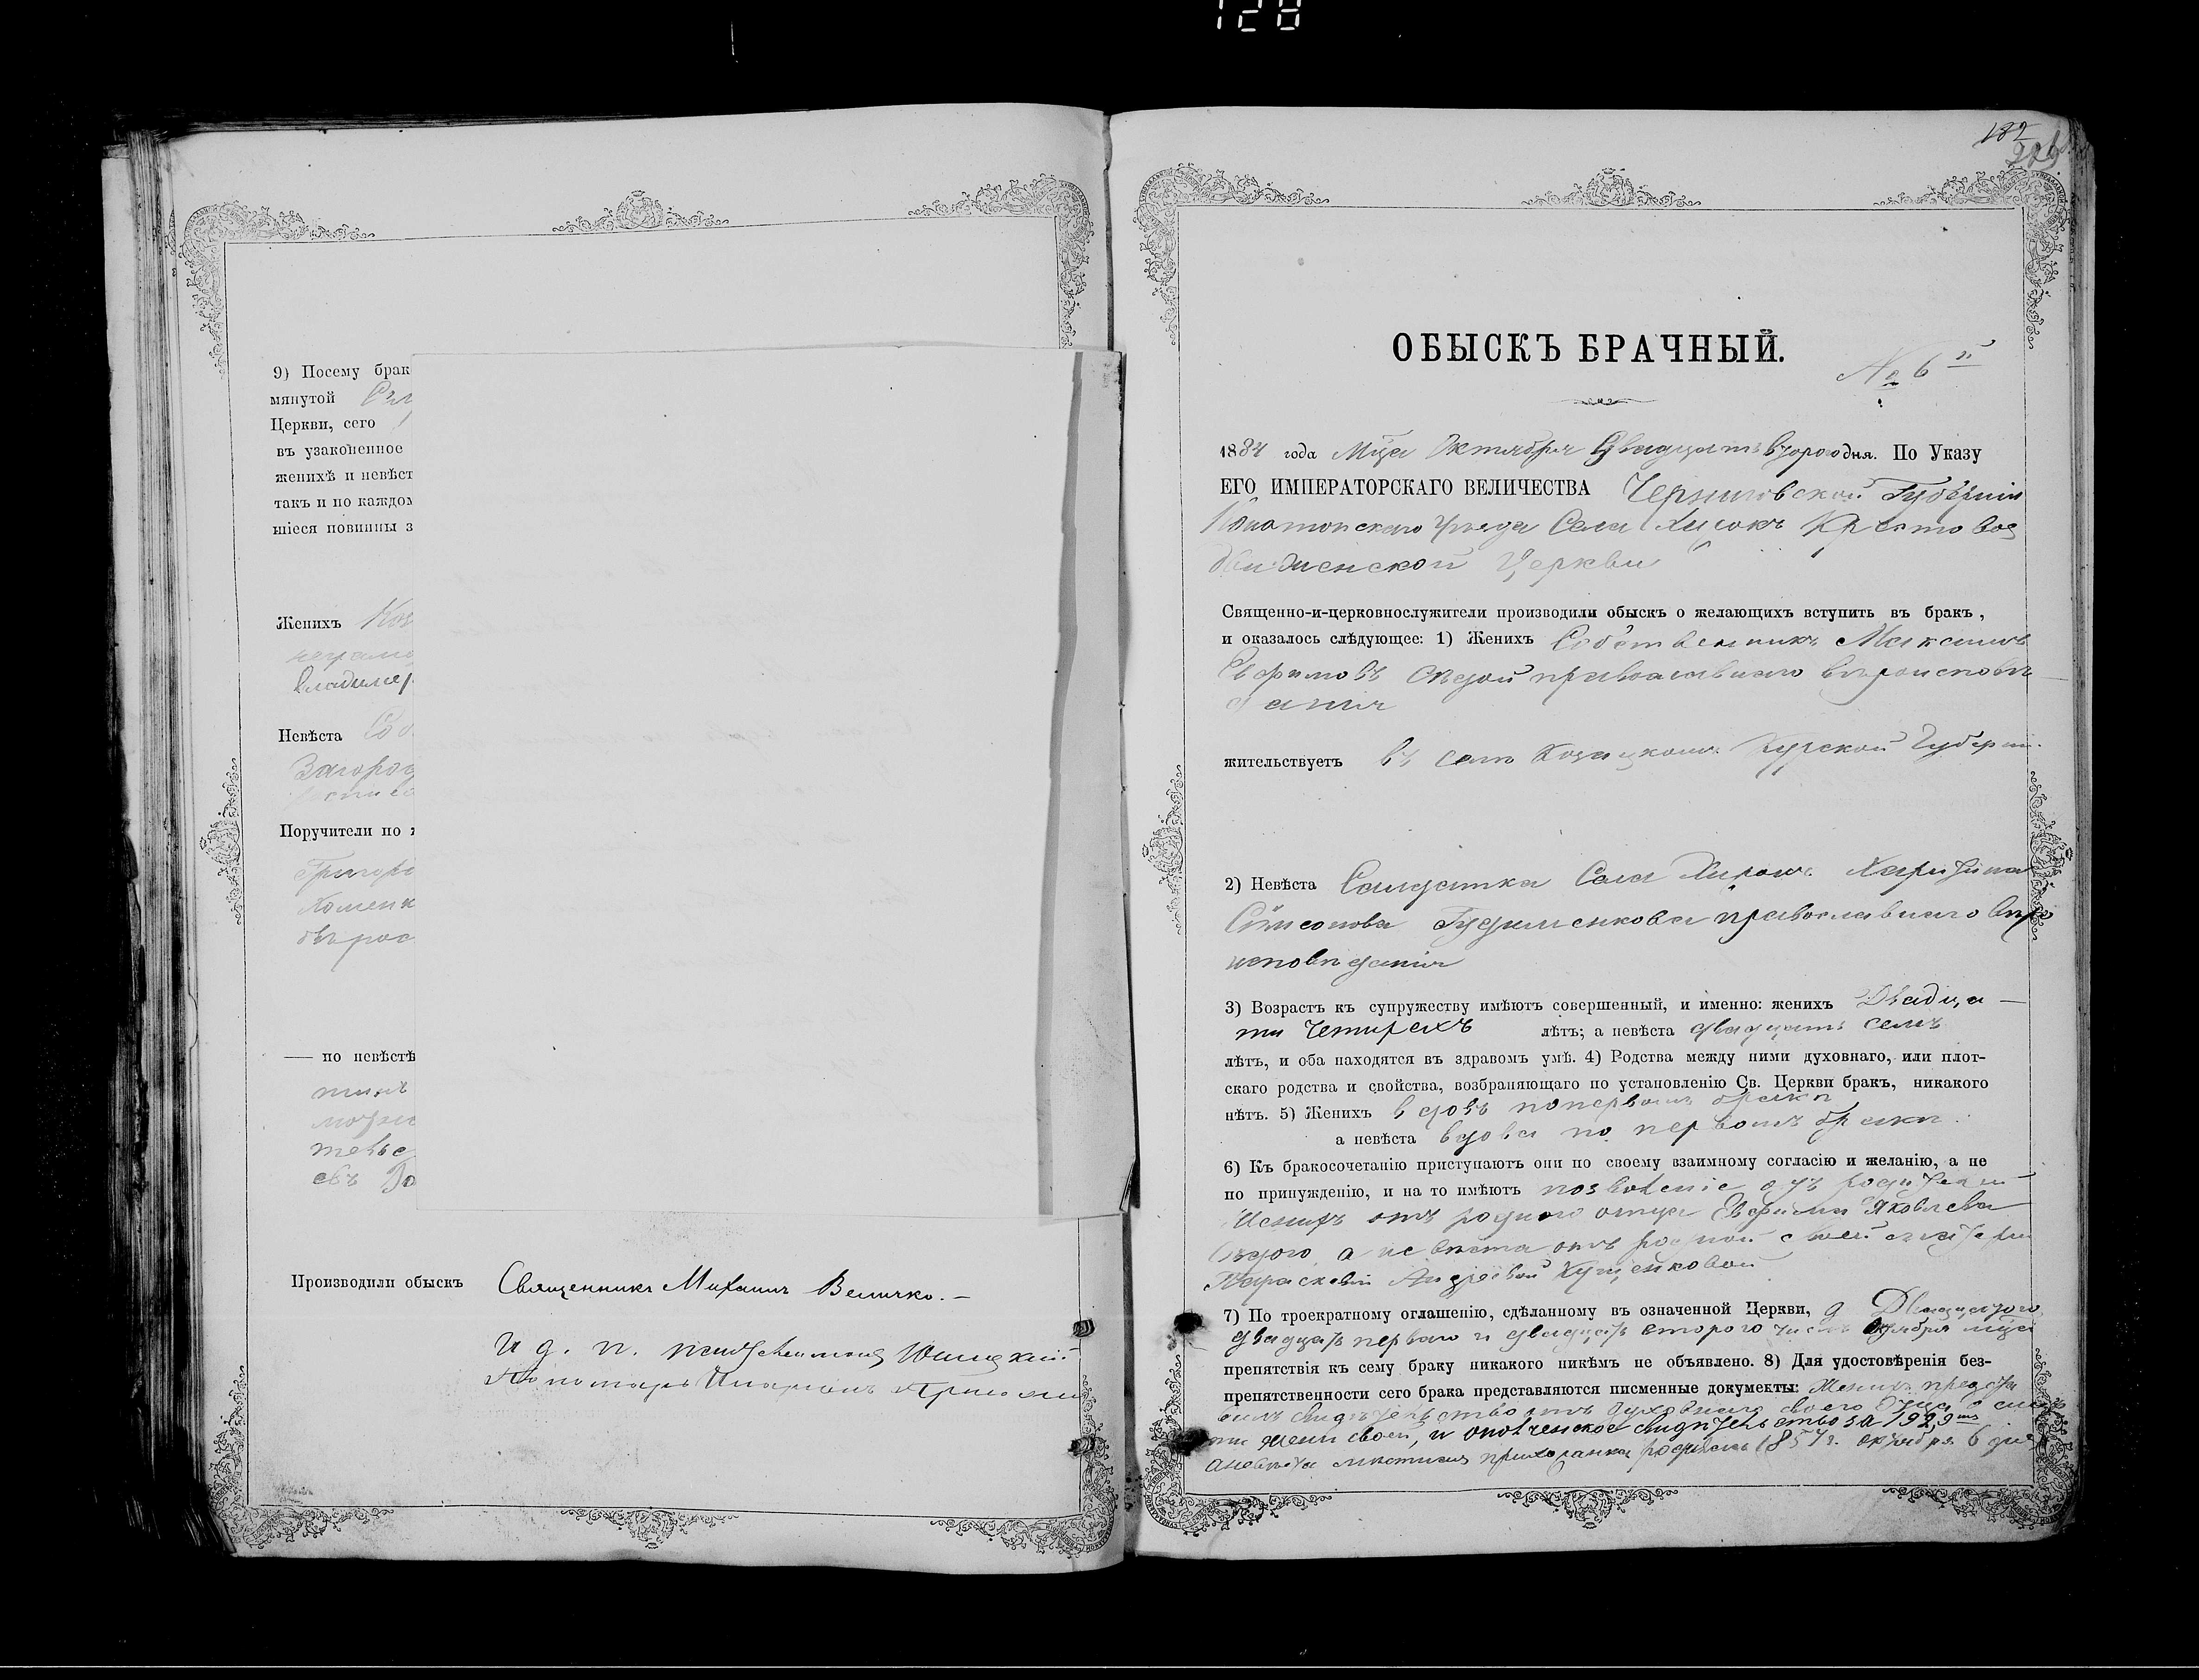 128
9) Посему брак
мянутой
Церкви, сего
въ узаконенное
женихѣ и невѣст
такъ и по каждом
шіеся повинны з
Женихъ Коз
неграмо
Владимер
Невѣста Соб
Загород
росписа
Поручители по ж
Григорі
Хоменк
— по невѣстѣ
Производили обыскъ Священникъ Михаилъ Величко. —
И. д. п.
Пономарь
182
ОБЫСКЪ БРАЧНЫЙ.
№ 6й
1884 года Мца Октября Двадцать второго дня. По Указу
ЕГО ИМПЕРАТОРСКАГО ВЕЛИЧЕСТВА Черниговской Губерніи
Конотопскаго Уѣзда Села Хижокъ Крестовоз
движенской Церкви
Священно-и-церковнослужители производили обыскъ о желающихъ вступить въ бракъ,
и оказалось слѣдующее: 1) Женихъ Собственникъ Максимъ
Евфимовъ Сѣдой православнаго вѣроисповѣ
данія
жительствуетъ въ селѣ Козацкомъ Курской Губерніи
2) Невѣста Салдатка Села
Гудименкова православнаго вѣро
исповѣданія
3) Возрастъ къ супружеству имѣютъ совершенный, и именно: женихъ Двадца —
ти Четирехъ лѣтъ; а невѣста двадцать семъ
лѣтъ, и оба находятся въ здравомъ умѣ. 4) Родства между ними духовнаго, или плот-
скаго родства и свойства, возбраняющаго по установленію Св. Церкви бракъ, никакого
нѣтъ. 5) Женихъ вдовъ по первомъ бракѣ
а невѣста вдова по первомъ бракѣ.
6) Къ бракосочетанію приступаютъ они по своему взаимному согласію и желанію, а не
по принужденію, и на то имѣютъ позволеніе отъ родителей
Женихъ отъ родного отца Евфима Яковлева
Сѣдого а невѣста отъ родной своей матери
Параскевіи Андреевой Куценковой
7) По троекратному оглашенію, сдѣланному въ означенной Церкви, Двадцатого
двадцать первого и двадцать второго числъ Октября мца
препятствія къ сему браку никакого никѣмъ не объявлено. 8) Для удостовѣренія без-
препятственности сего брака представляются писменные документы: Женихъ предста
вилъ свидѣтельство отъ духовнаго своего Отца о смер
ти жены своей, и ополченское свидѣтельство за 1929
а невѣста мѣстная прихожанка родилась 1857 г. октября 6 дня